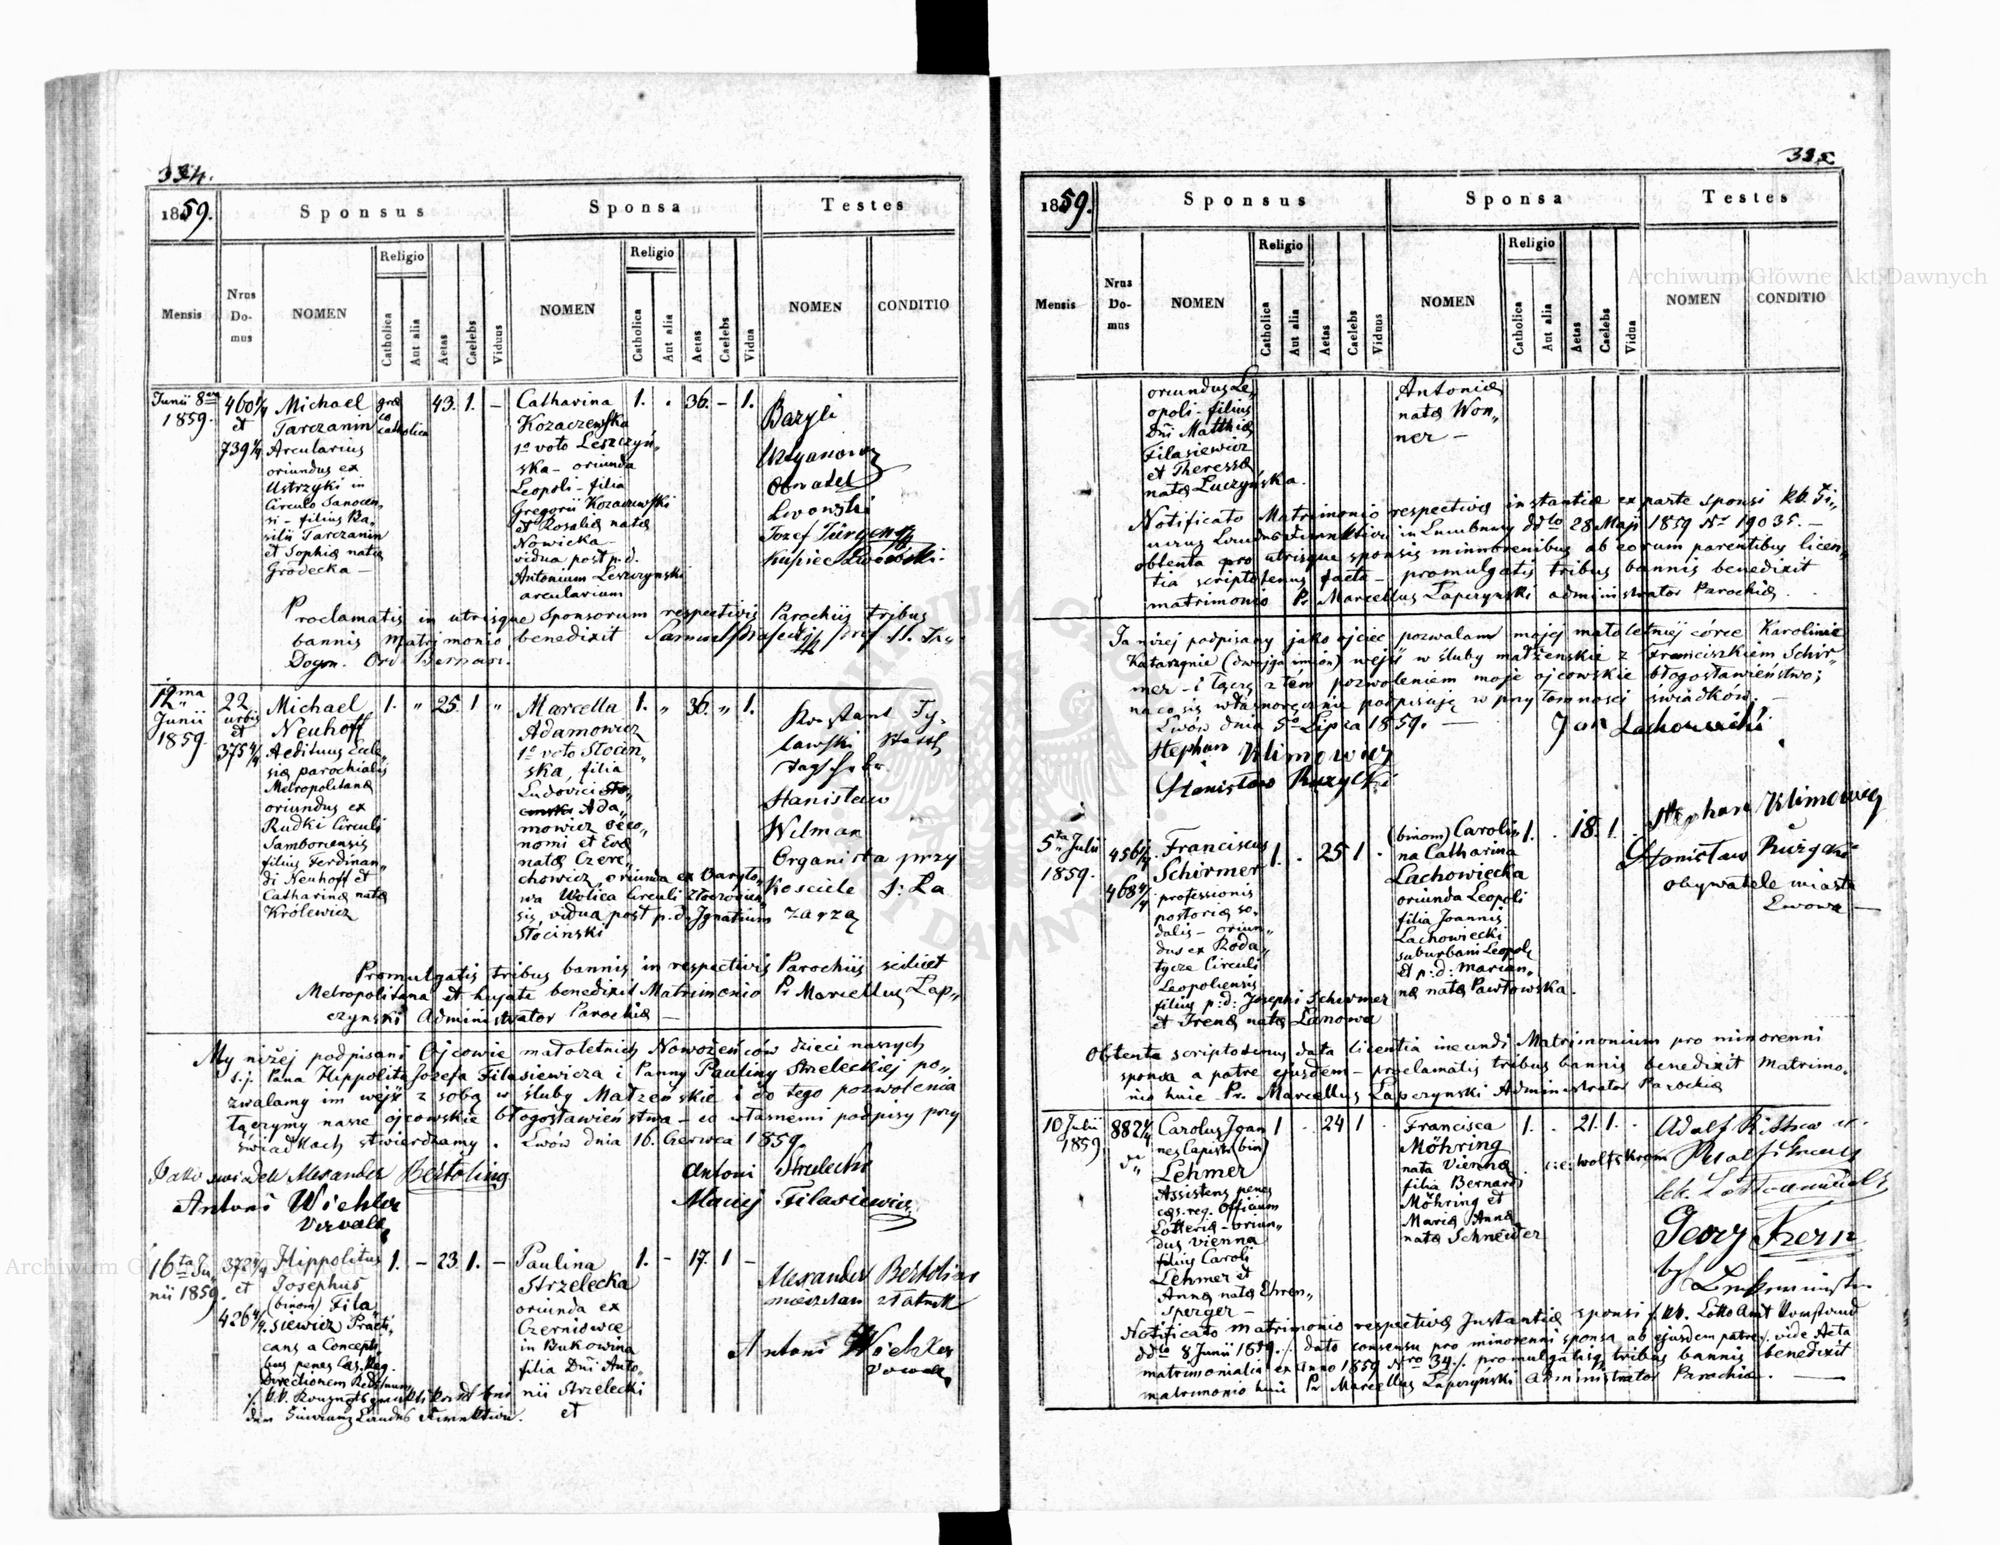 334.
1859.
Sponsus
Sponsa
Testes
Mensis
Nrus Do-mus
NOMEN
Religio
Catholica
Aut alia
Aetas
Caelebs
Viduus
NOMEN
Religio
Catholica
Aut alia
Aetas
Caelebs
Vidua
NOMEN
CONDITIO
Junii 8va
1859.
460 2/4
et
739 4/4
Michael
Tarczanin
Arcularius
oriundus ex
Ustrzyki in
Circulo Sanocen„
si - filius Ba„
silii Tarczanin
et Sophiæ natæ
Grodecka —
græ
co
catholica
43. 1. –
Catharina
Kozaczewska
1o voto Leszczyń„
ska - oriunda
Leopoli - filia
Gregorii Kozaczewski
et Rosaliæ natæ
Nowicka
vidua post p.d.
Antonium Leszczynski
arcularium
1. . 36. – 1.
Bazyli
Obywatel
Lwowski
Jozef Jürgens
Kupiec Lwowski.
Proclamatis in utrisque Sponsorum respectivis Parochiis tribus
bannis Matrimonio benedixit
Dogm. Ord. Bernar.
12ma
Junii
1859.
22
urbis
et
375 4/4
Michael
Neuhoff
Aedituus Eccle„
siæ parochialis
Metropolitanæ
oriundus ex
Rudki Circuli
Samboriensis
filius Ferdinan„
di Neuhoff et
Catharinæ natæ
Królewicz
1. „ 25 1 „
Marcella
Adamowicz
1o voto Stocin„
ska, filia
Ludovici
Ada„
mowicz oeco„
nomi et Evæ
natæ Czere„
chowicz oriunda ex Baryło„
wa Wolica Circuli Złoczovien„
sis, vidua post p.d. Ignatium
Stociński
1. „ 36. „ 1.
Stanisław
Wilman
Organista przy
Kosciele S: Ła
zarza
Promulgatis tribus bannis in respectivis Parochiis scilicet
Metropolitana et hujate benedixit Matrimonio Pr Marcellus Łap„
czynski Administrator Parochiæ —
My niżej podpisani Ojcowie małoletnich Nowożeńców dzieci naszych
t.j. Pana Hippolita Józefa Filasiewicza i Panny Pauliny Strzeleckiej po„
zwalamy im wejść z sobą w śluby Małżeńskie i do tego pozwolenia
łączymy nasze ojcowskie błogosławieństwa - co własnemi podpisy przy
świadkach stwierdzamy. Lwów dnia 16. Czerwca 1859.
Jako swiadek Alexander Bertoling
Antoni Strzelecki
Antoni Wichler
Maciej Filasiewicz
16ta Ju„
nii 1859.
372 4/4
et
426 4/4
Hippolitus
Josephus
(binom) Fila„
siewicz Practi„
cans a Concept„
bus penes Cæs. Reg.
Directionem
1. – 23. 1. –
Paulina
Strzelecka
oriunda ex
Czerniowce
in Bukowina
filia Dni Anto„
nii Strzelecki
et
1. – 17. 1 –
Alexander Bertoling
mieszczan złotnik
Antoni Wichler
335
1859.
Sponsus
Sponsa
Testes
Mensis
Nrus Do-mus
NOMEN
Religio
Catholica
Aut alia
Aetas
Caelebs
Viduus
NOMEN
Religio
Catholica
Aut alia
Aetas
Caelebs
Vidua
NOMEN
CONDITIO
oriundus Le„
opoli - filius
Dni Matthiæ
Filasiewicz
et Theresæ
natæ Łuczyńska.
Antoniæ
natæ Won„
ner —
Notificato Matrimonio respectivæ instantiæ ex parte sponsi
in Lemberg ddto 28 Maji 1859 No 19035. —
obtenta pro utrisque sponsis minnorenibus ab eorum parentibus licen„
tia scriptotenus facta - promulgatis tribus bannis benedixit
matrimonio Pr Marcellus Łapczynski administrator Parochiæ.
Ja niżej podpisany jako ojciec pozwalam mojej małoletniej córce Karolinie
Katarzynie (dwojga imion) wejść w śluby małżenskie z Franciszkiem Schir„
mer - i łączę z tém pozwoleniem moje ojcowskie błogosławieństwo;
na co się własnoręcznie podpisują w przytomności świadków. —
Lwów dnia 5go Lipca 1859. — Jan Lachowiecki
Stephan Klimowicz
Stanisław Ruzycki
5ta Julii
1859.
456 4/4
468 4/4
Franciscus
Schirmer
professionis
pistoriæ so„
dalis - oriun„
dus ex Roda„
tycze Circuli
Leopoliensis
filius p:d: Josephi Schirmer
et Irenæ natæ Lanowa
1. . 25 1 .
(binom) Caroli„
na Catharina
Lachowiecka
oriunda Leopoli
filia Joannis
Lachowiecki
suburbani Leopol:
et p:d: Marian„
næ natæ Pawłowska.
1. . 18. 1. .
Stephan Klimowicz
Stanisław Ruzycki
obywatele miasta
Lwowa —
Obtenta scriptotenus data licentia ineundi Matrimonium pro minorenni
sponsa a patre ejusdem - proclamatis tribus bannis benedixit Matrimo„
nio huic Pr. Marcellus Łapczynski Administrator Parochiæ
10 Julii
1859
882 4/4
Carolus Joan
nes Capistr (bin)
Lehmer
Assistens penes
cæs. reg. Officium
Lotteriæ - oriun„
dus Vienna
filius Caroli
Lehmer et
Annæ natæ Ehren„
sperger —
1 . 24 1 .
Francisca
Möhring
nata Viennæ
filia Bernardi
Möhring et
Mariæ Annæ
natæ Schneider
1. . 21. 1. .
Georg Kern
Notificato matrimonio respectivæ Instantiæ sponsi
ddto 8 Junii 1859. dato consensu pro minorenni sponsa ab ejusdem patre vide Acta
matrimonialia ex anno 1859 Nro 34. promulgatisq. tribus bannis benedixit
matrimonio huic Pr Marcellus Łapczyński Administrator Parochiæ. —
Archiwum Główne Akt Dawnych